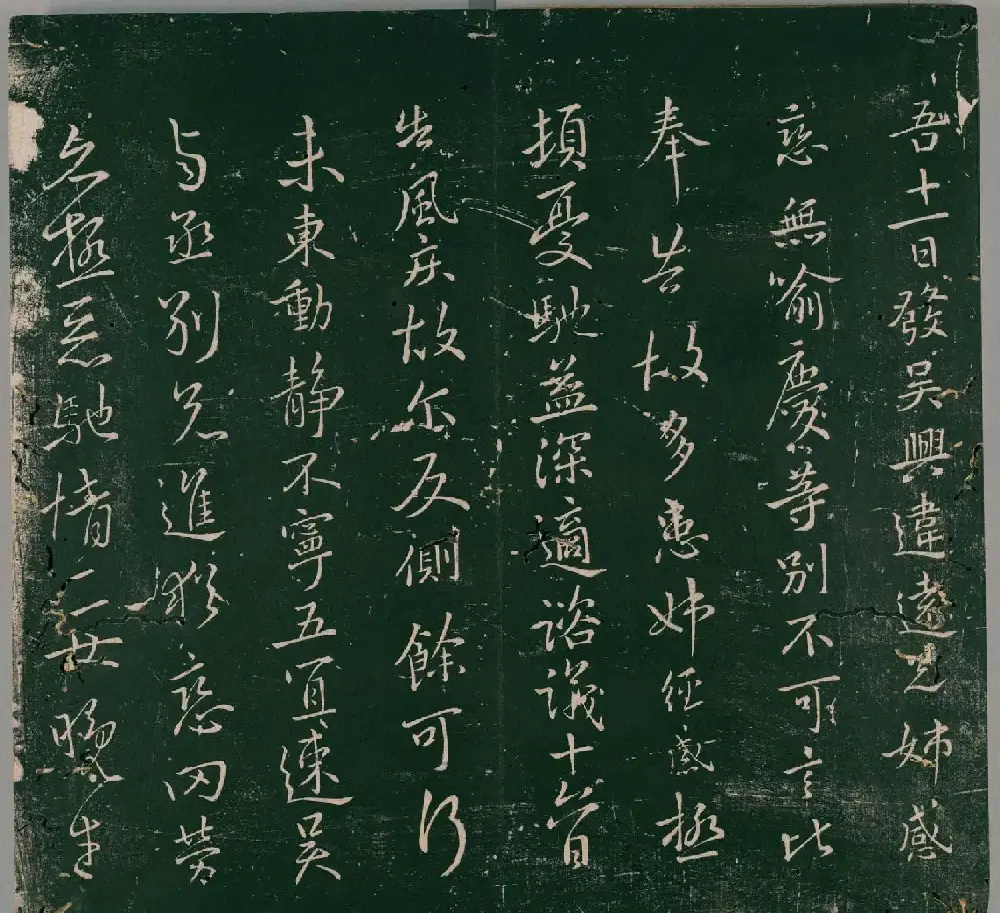 吾十一日發吳興違遠兄姊感
戀無喻慶等別不可言比
奉告故多患姊經感極
頓憂馳益深適諮議十六日
告風疾故尔反側餘可行
未東動静不寧五宜速吳
与丞別兄進猶戀罔勞
亦極惡馳情二女晚生